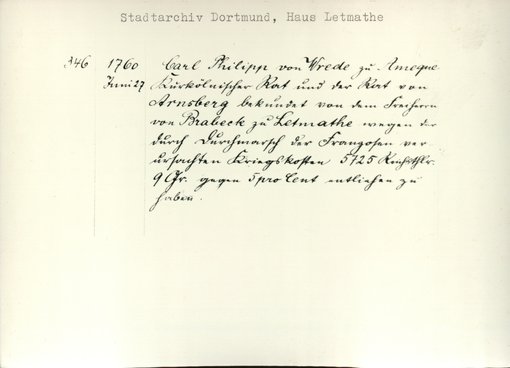 Stadtarchiv Dortmund, Haus Letmathe
346 1760 Carl Philipp von Wrede zu Ameque
Juni 27 Kurkölnischer Rat und der Rat von
Arnsberg bekundet von dem Freiherrn
von Brabeck zu Letmathe wegen der
durch Durchmarsch der Franzosen ver
ursachten Kriegskosten 5125 Reichsthlr.
9 Gr. gegen 5 pro Cent entliehen zu
haben.